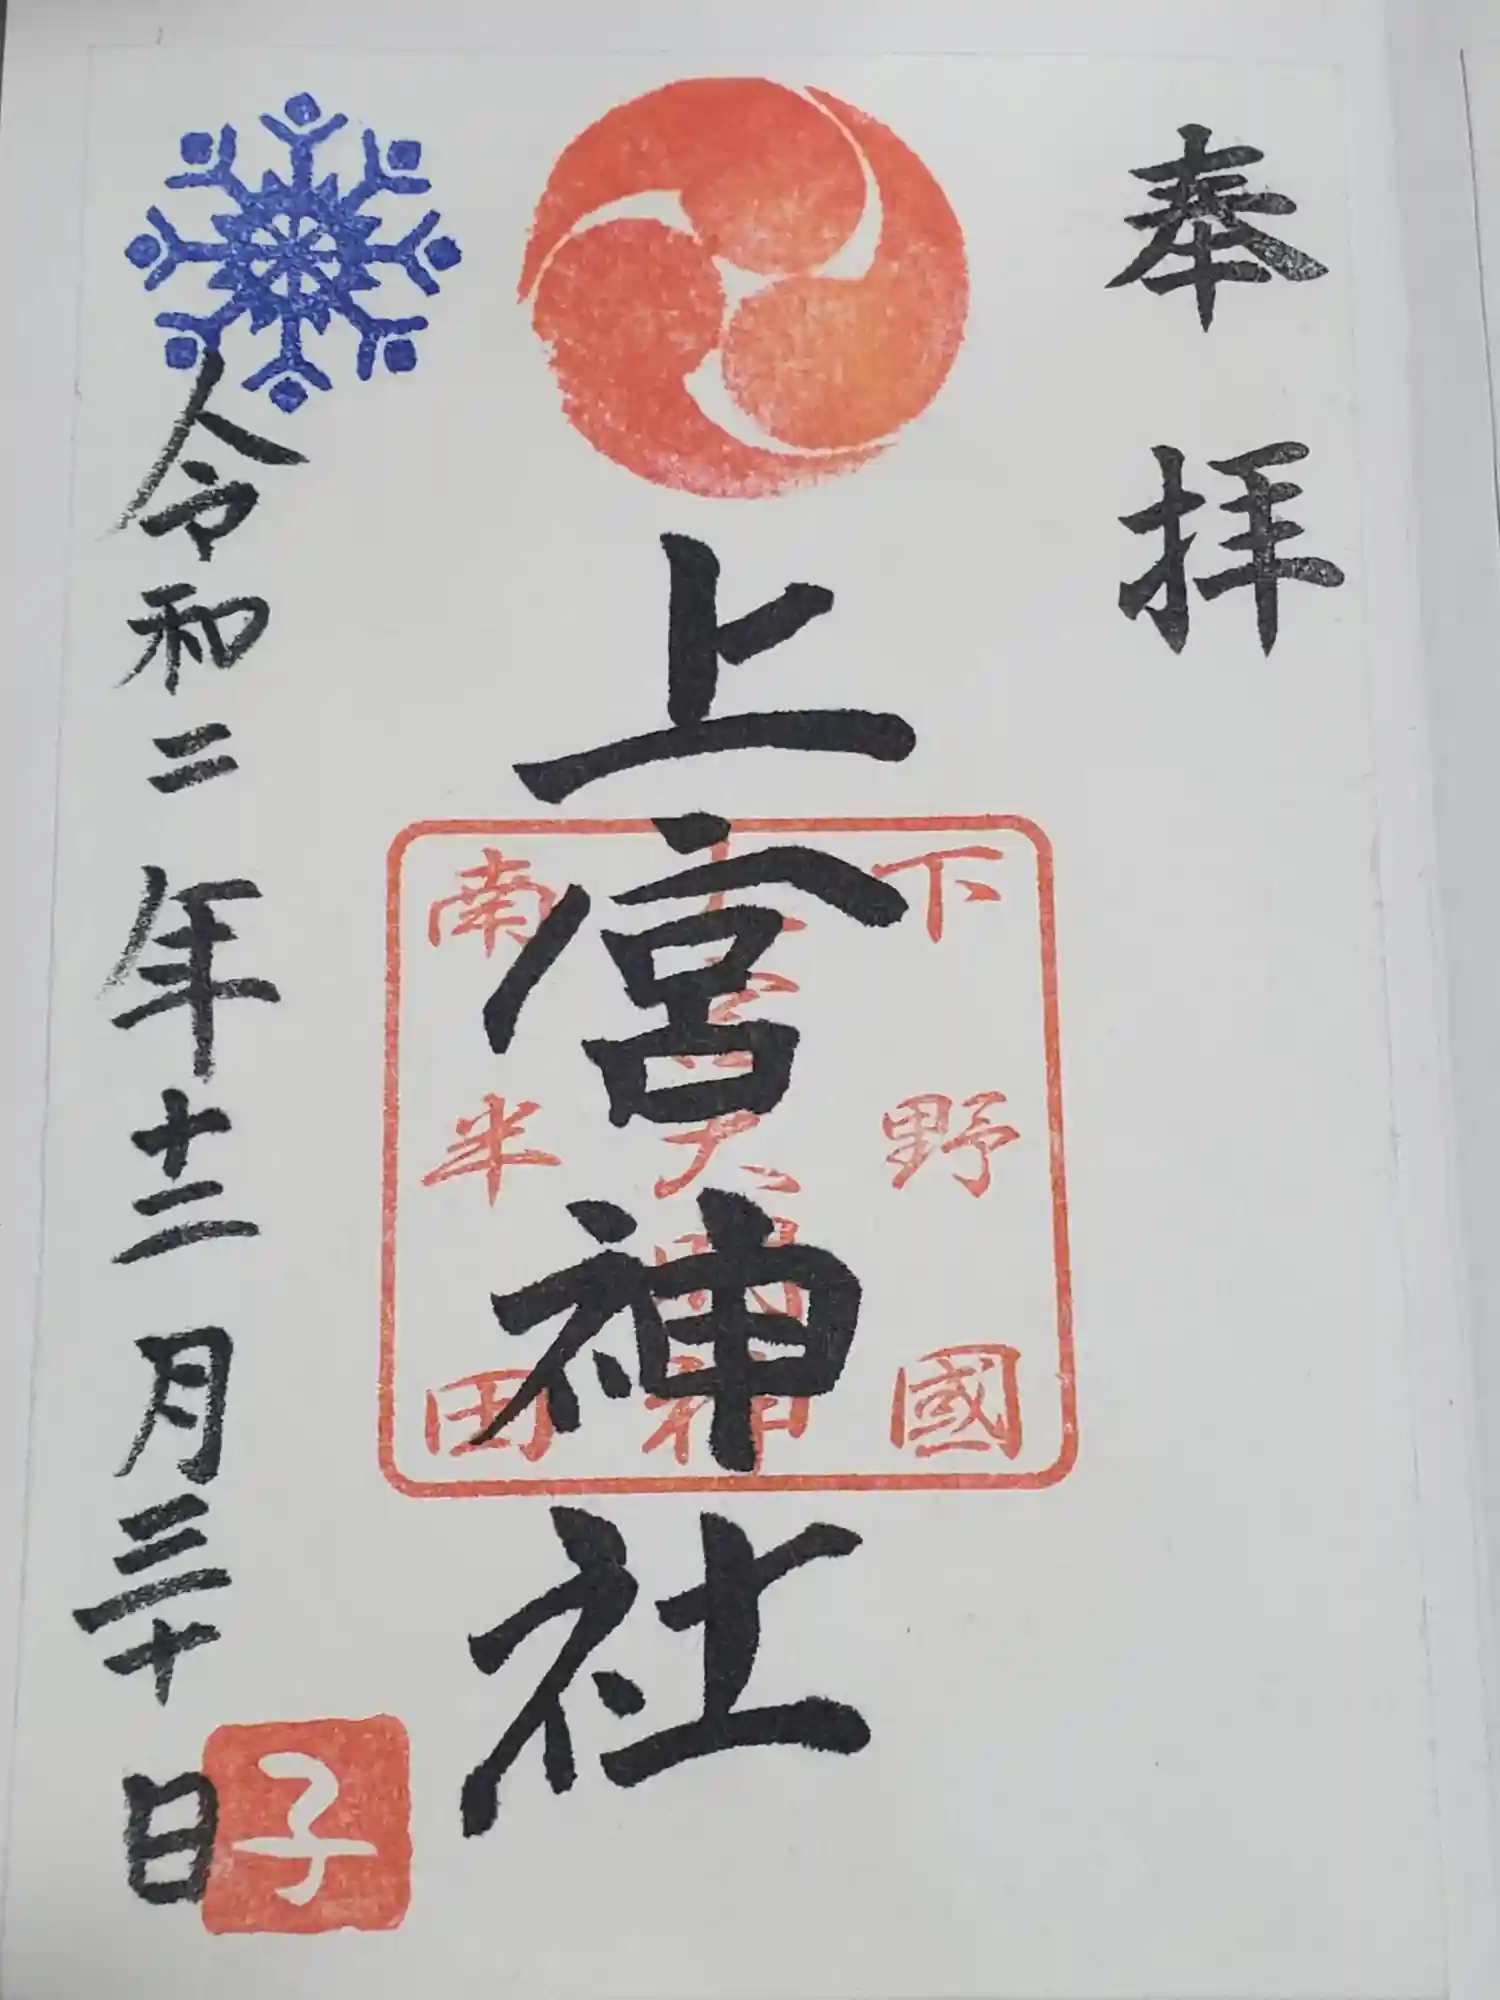 奉拝
上宮神社
下野國
大明神
南半田
令和二年十二月三十日
子